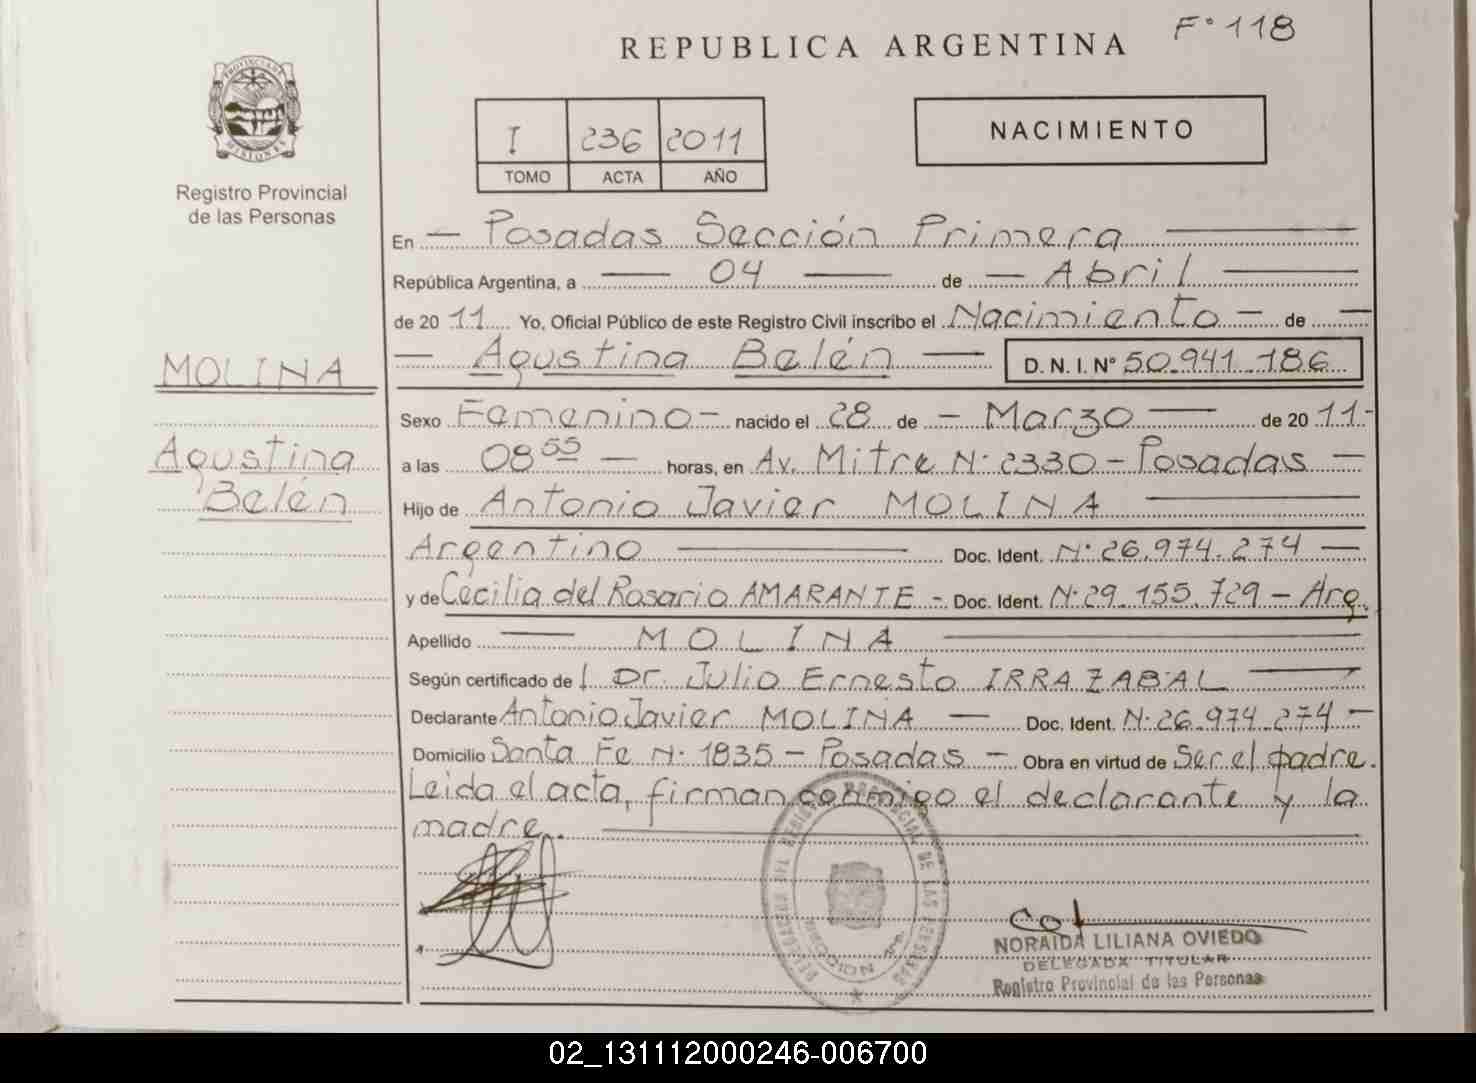 F° 118
REPUBLICA ARGENTINA
PROVINCIA DE
MISIONES
Registro Provincial
de las Personas
I 236 2011
TOMO ACTA AÑO
NACIMIENTO
En — Posadas Sección Primera —
República Argentina, a — 04 — de — Abril —
de 20 11 Yo, Oficial Público de este Registro Civil inscribo el Nacimiento — de —
— Agustina Belén — D. N. I. N° 50.941.186
MOLINA
Agustina
Belén
Sexo Femenino — nacido el 28 de — Marzo — de 20 11 -
a las 08 55 — horas, en Av. Mitre N° 2330 - Posadas —
Hijo de Antonio Javier MOLINA —
Argentino — Doc. Ident. N° 26.974.274 —
y de Cecilia del Rosario AMARANTE - Doc. Ident. N° 29.155.729 - Arg.
Apellido — MOLINA —
Según certificado de Dr. Julio Ernesto IRRAZABAL —
Declarante Antonio Javier MOLINA — Doc. Ident. N° 26.974.274 —
Domicilio Santa Fe N° 1835 - Posadas — Obra en virtud de Ser el padre.
Leida el acta, firman conmigo el declarante y la
madre.
NORAIDA LILIANA OVIEDO
DELEGADA TITULAR
Registro Provincial de las Personas
02_131112000246-006700